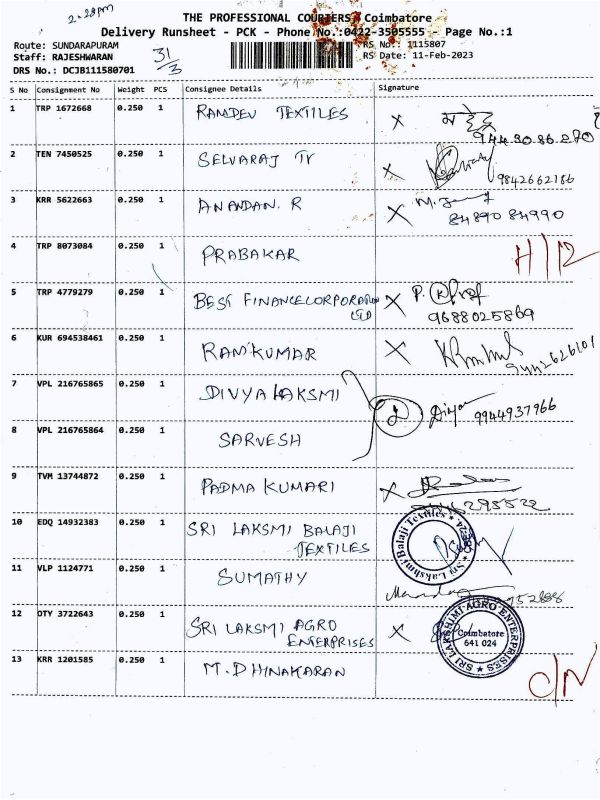 2.28pm
THE PROFESSIONAL COURIERS, Coimbatore
Delivery Runsheet - PCK - Phone No.:0422-3505555 - Page No.:1
Route: SUNDARAPURAM
Staff: RAJESHWARAN
DRS No.: DCJB111580701
31/3
RS No.: 1115807
RS Date: 11-Feb-2023
S No Consignment No Weight PCS Consignee Details Signature
1 TRP 1672668 0.250 1 RAMDEV TEXTILES X
9443086280
2 TEN 7450525 0.250 1 SELVARAJ TV X 9842662186
3 KRR 5622663 0.250 1 ANANDAN. R X
84890 84990
4 TRP 8073084 0.250 1 PRABAKAR H/12
5 TRP 4779279 0.250 1 BEST FINANCE CORPORATION LTD X P.
9688025869
6 KUR 694538461 0.250 1 RAMKUMAR X 9442626101
7 VPL 216765865 0.250 1 DIVYA LAKSMI D Divya 9944937966
8 VPL 216765864 0.250 1 SARVESH
9 TVM 13744872 0.250 1 PADMA KUMARI X
295522
10 EDQ 14932383 0.250 1 SRI LAKSMI BALAJI TEXTILES
Sri Lakshmi Balaji Textiles
11 VLP 1124771 0.250 1 SUMATHY
12 OTY 3722643 0.250 1 SRI LAKSMI AGRO ENTERPRISES X
SRI LAKSHIMI AGRO ENTERPRISES
Coimbatore
641 024
13 KRR 1201585 0.250 1 M. DHINAKARAN D/N